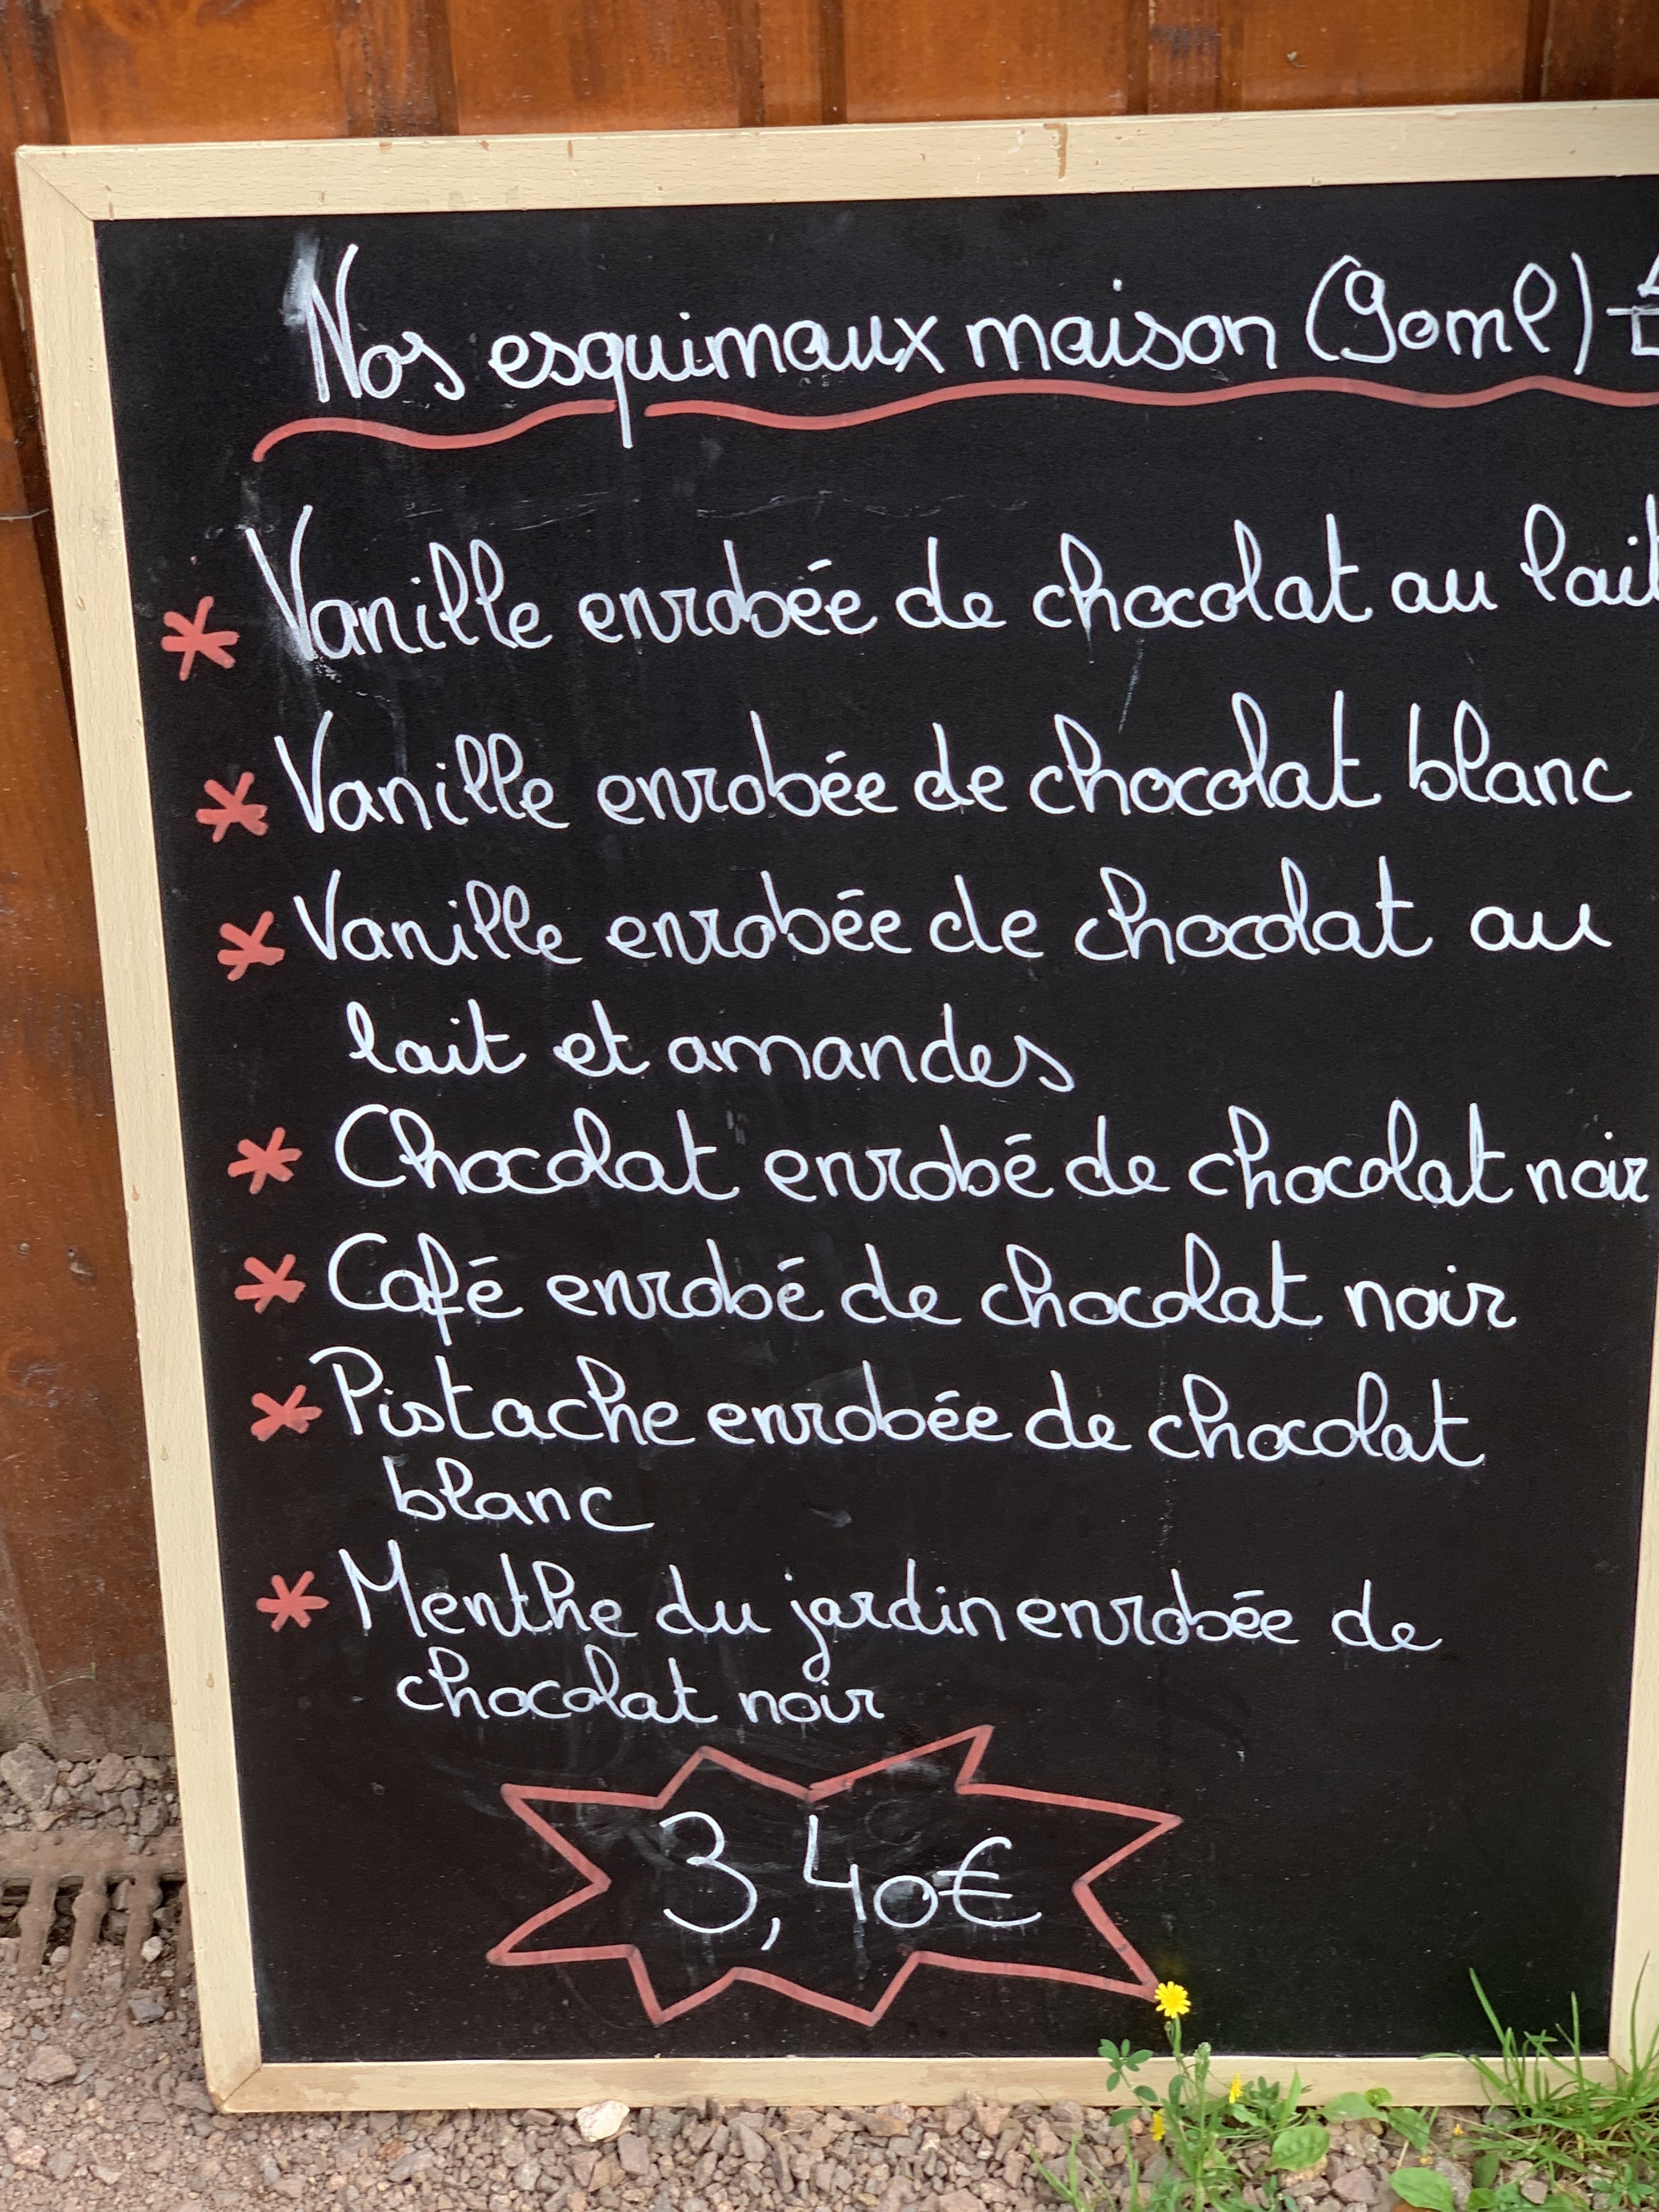 Nos esquimaux maison (90ml)
* Vanille enrobée de chocolat au lait
* Vanille enrobée de chocolat blanc
* Vanille enrobée de chocolat au
lait et amandes
* Chocolat enrobé de chocolat noir
* Café enrobé de chocolat noir
* Pistache enrobée de chocolat
blanc
* Menthe du jardin enrobée de
chocolat noir
3,40€